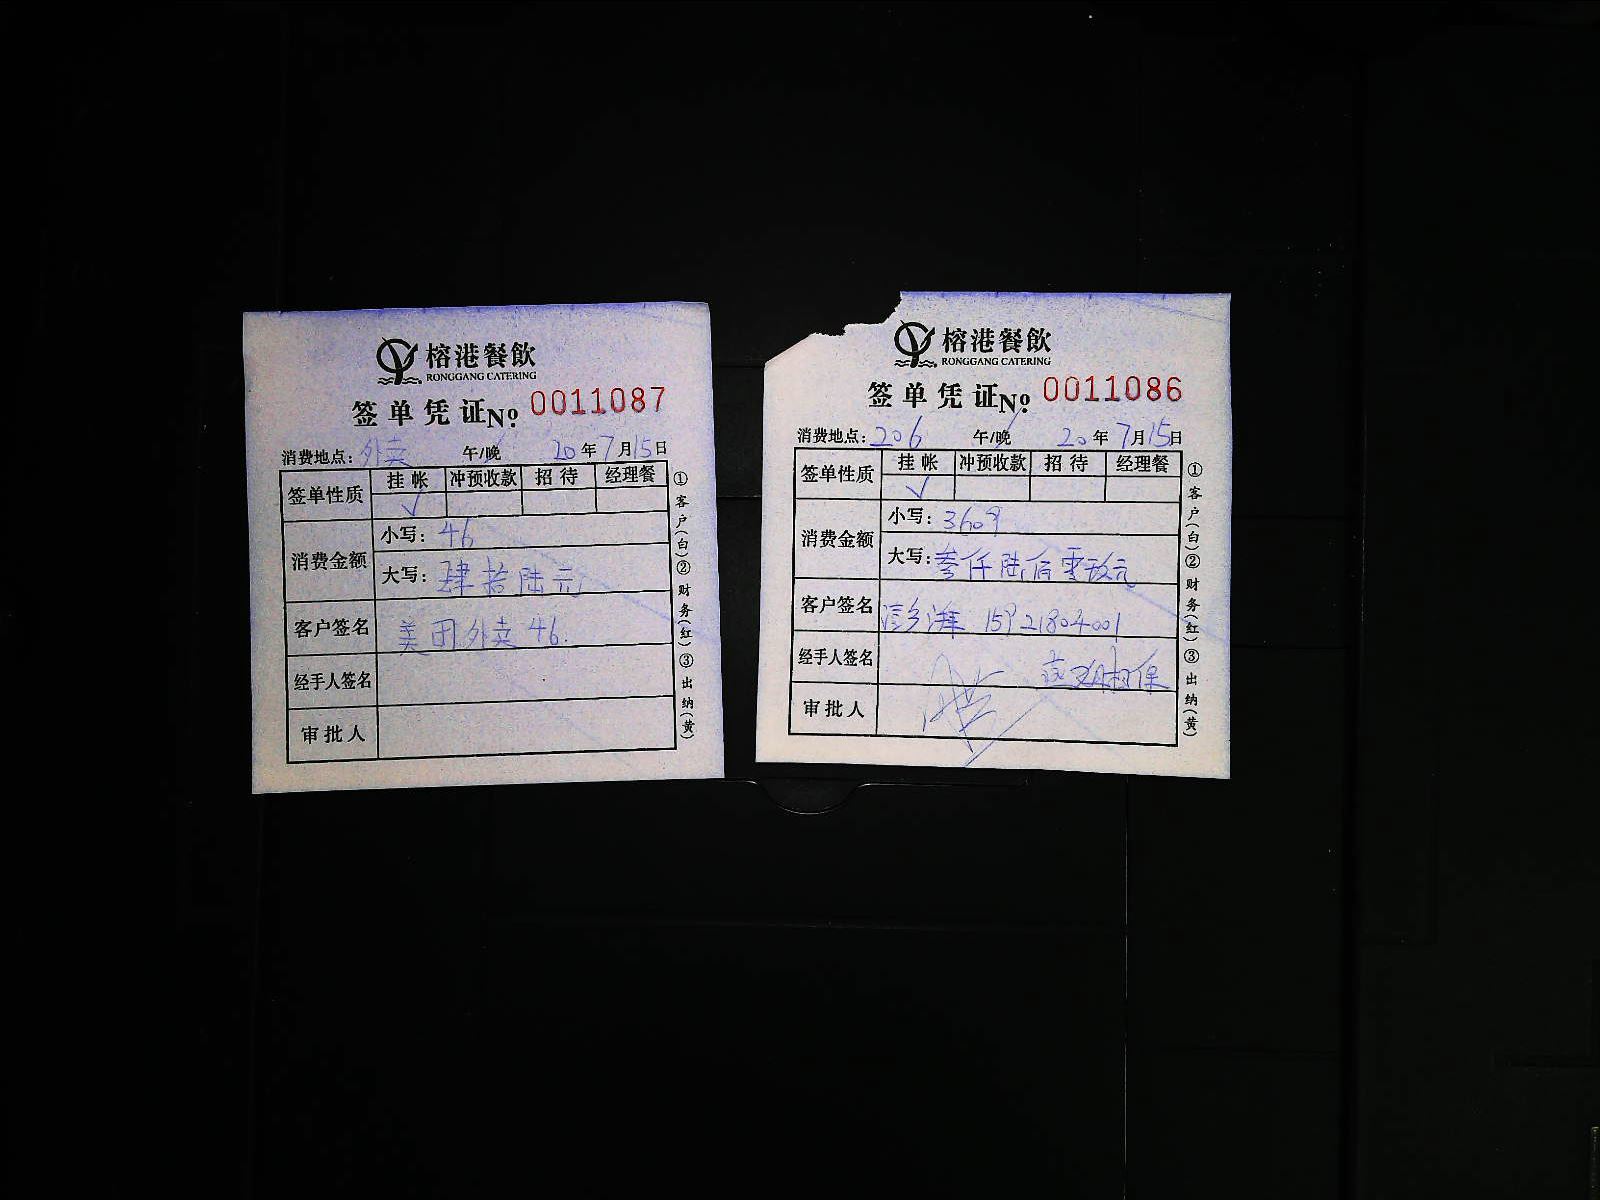 榕港餐飲
RONGGANG CATERING
签单凭证 No. 0011087
消费地点: 外卖 午/晚 20年7月15日
签单性质 挂帐 冲预收款 招待 经理餐
✓
消费金额 小写: 46
大写: 肆拾陆元
客户签名 美团外卖 46.
经手人签名
审批人
①客户(白)②财务(红)③出纳(黄)
榕港餐飲
RONGGANG CATERING
签单凭证 No. 0011086
消费地点: 206 午/晚 20年7月15日
签单性质 挂帐 冲预收款 招待 经理餐
✓
消费金额 小写: 3609
大写: 叁仟陆佰零玖元
客户签名 澎湃 15921804001
经手人签名
审批人
①客户(白)②财务(红)③出纳(黄)